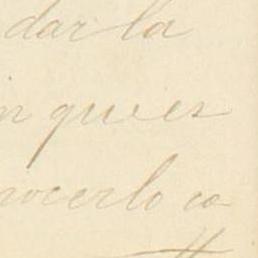 dar la
n quien
nocerlo co